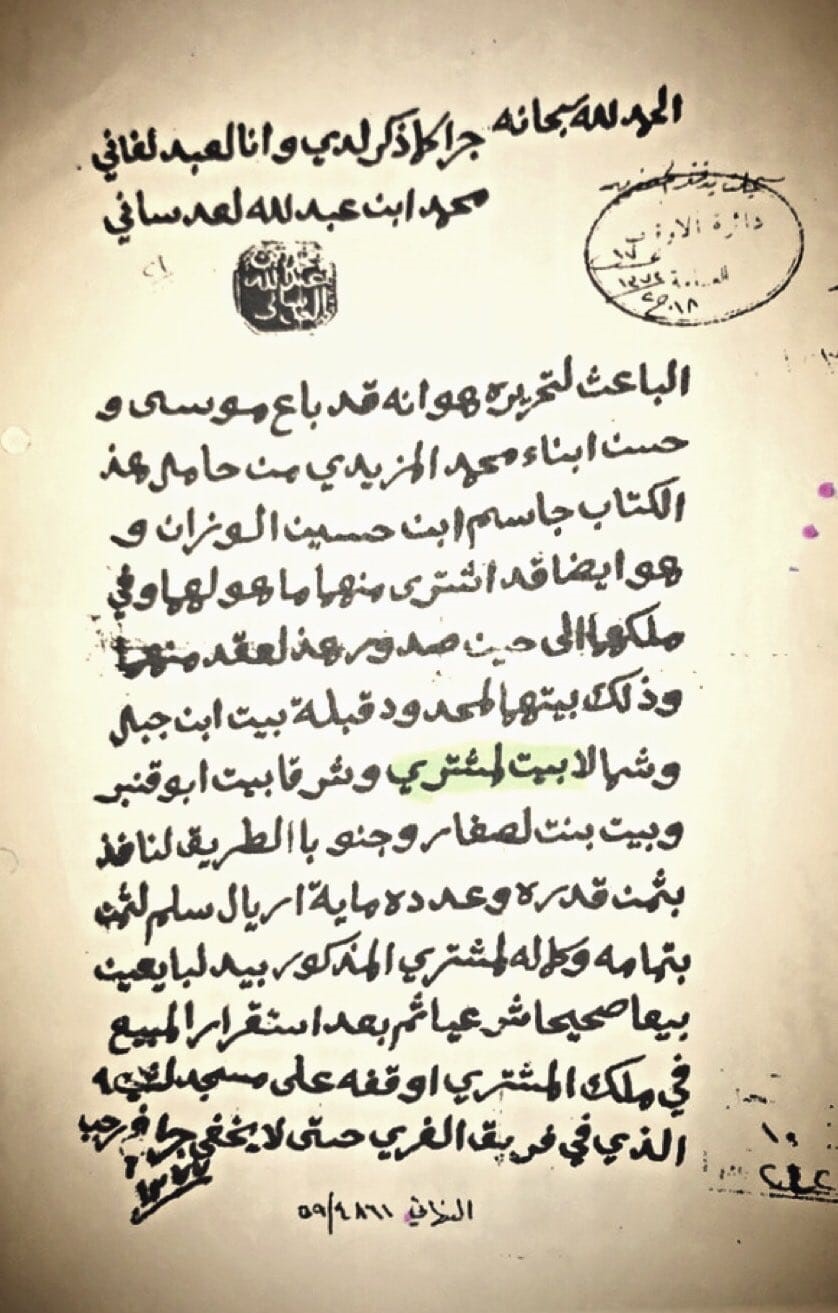 الحمد لله سبحانه
جرا كلما ذكر لدي وانا لعبد لفاني
محمد ابن عبد لله لعدساني
محمد بن
عبد الله
العدساني
دائرة الاوقاف
الباعث لتحريره هو انه قد باع موسى و
حسن ابناء محمد المزيدي من حامل هذ
الكتاب جاسم ابن حسين الوزان و
هو ايضا قد اشترى منهما ما هو لهما وفي
ملكهما الى حين صدور هذ لعقد منهما
وذلك بيتهما لمحدود قبلة بيت ابن جبل
وشمالا بيت لمشتري وشرقا بيت ابو قنبر
وبيت بنت لصفار وجنوبا الطريق لنافذ
بثمن قدره وعدده ماية اريال سلم لثمن
بتمامه وكماله لمشتري المذكور بيد لبايعين
بيعا صحيحا شرعيا ثم بعد استقرار المبيع
في ملك المشتري اوقفه على مسجد
الذي في فريق الفري حتى لا يخفى جرا في رجب
٥٩/٤٨٦١